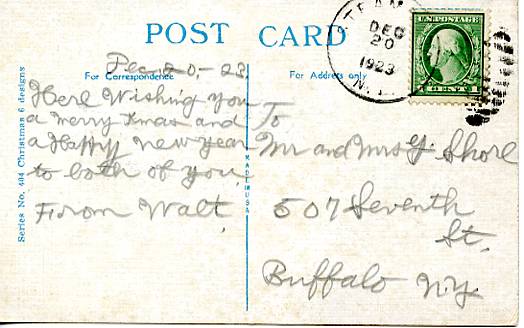 POST CARD
DEC
20
1923
N.Y.
U.S. POSTAGE
Dec 20 - 23.
For Correspondence
Here Wishing you
a merry Xmas and
a Happy new year
to both of you
From Walt.
Series No. 404 Christmas 6 designs
MADE IN USA
For Address only
To
Mr and Mrs G. Shorl
507 Seventh
St.
Buffalo N.Y.